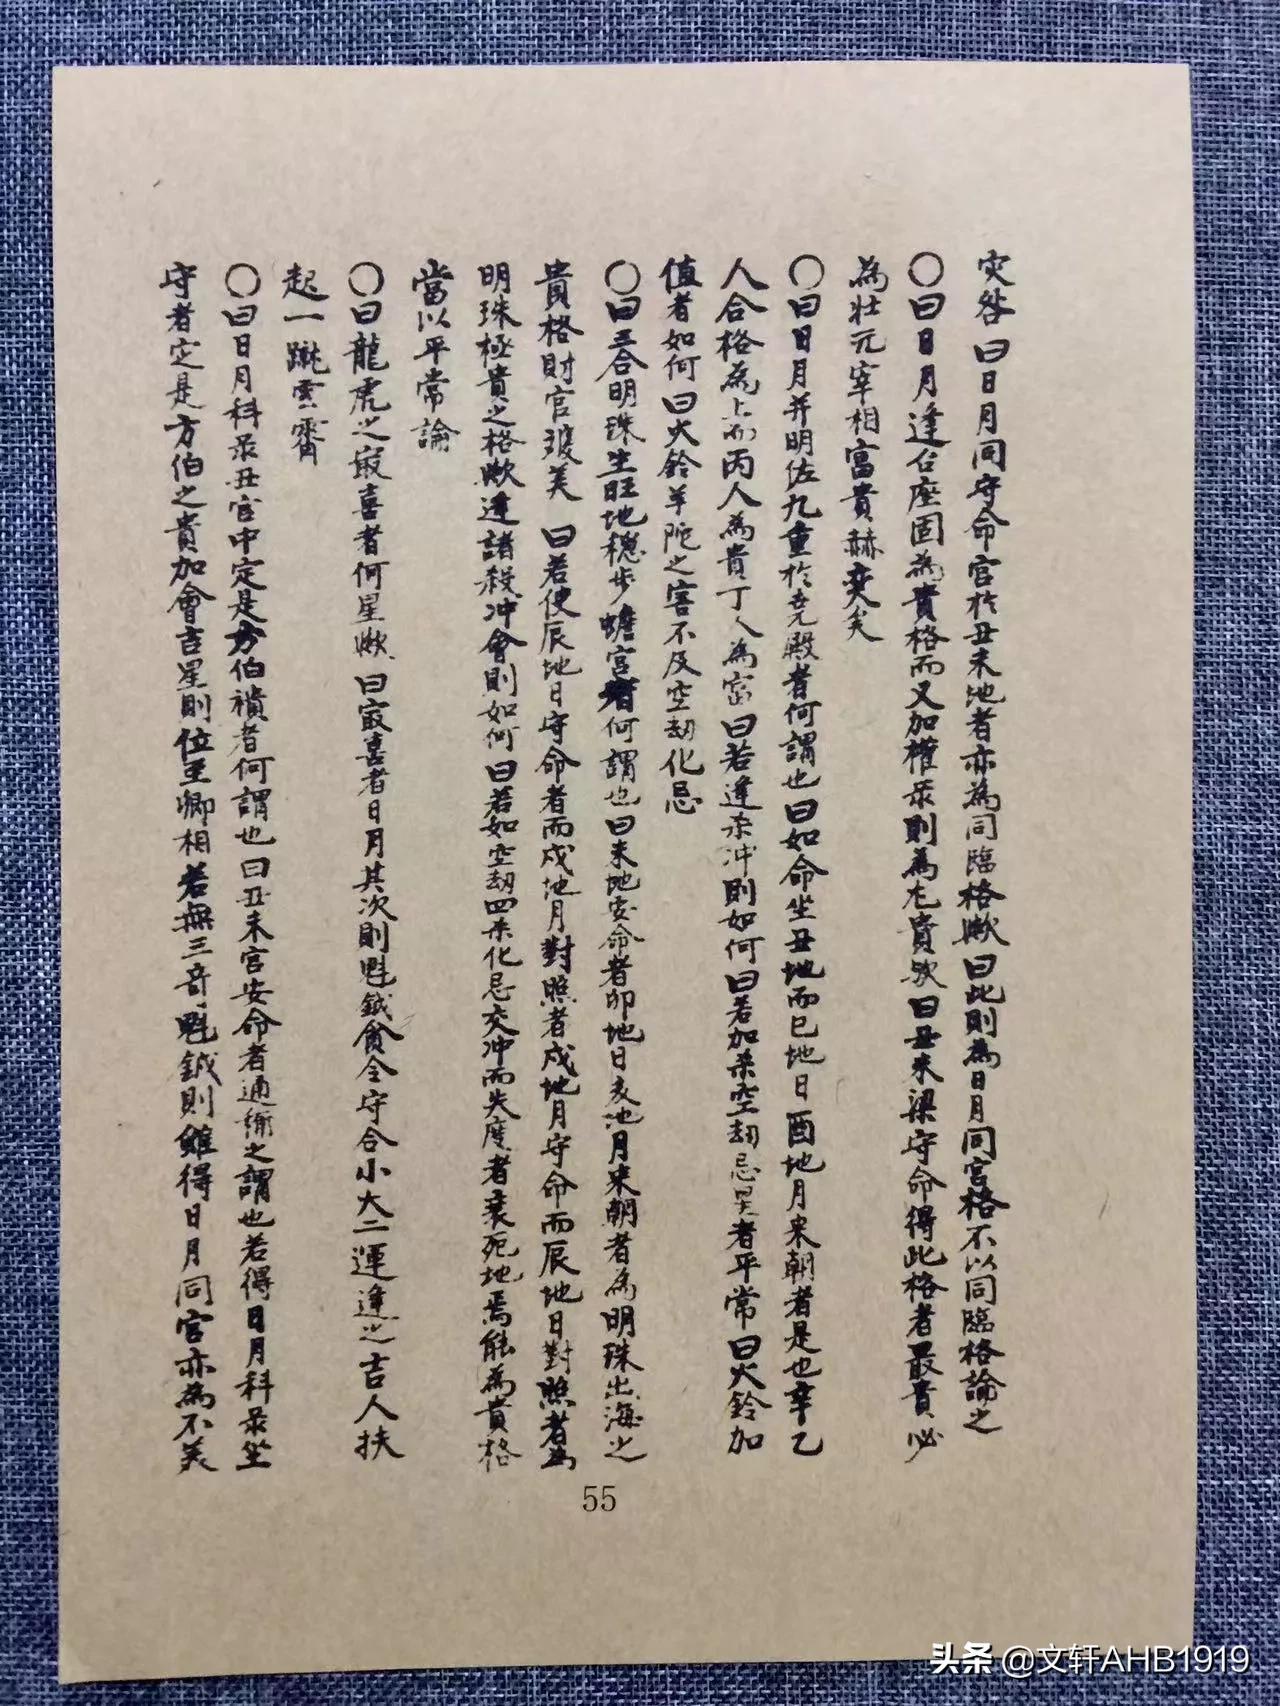 灾咎曰日月同守命宮於丑未地者亦為同臨格歟曰此則為日月同宮格不以同臨格論之
〇曰日月逢台座固為貴格而又加權彔則為尤貴欤曰丑未梁守命得此格者最貴必
為壮元宰相富貴赫奕矣
〇曰日月并明佐九重於尭殿者何謂也曰如命坐丑地而巳地日酉地月来朝者是也辛乙
人合格為上而丙人為貴丁人為富曰若逢杀冲則如何曰若加杀空劫忌星者平常曰火鈴加
值者如何曰火鈴羊陀之害不及空劫化忌
〇曰三合明珠生旺地穏步蟾宮者何謂也曰未地安命者卯地日亥地月来朝者為明珠出海之
貴格財官双美 曰若使辰地日守命者而戍地月對照者戍地月守命而辰地日對照者為
明珠極貴之格歟逢諸殺冲會則如何曰若如空劫四杀化忌交冲而失度者衰死地焉能為貴格
當以平常論
〇曰龍虎之㝡喜者何星歟曰㝡喜者日月其次則魁鉞貪令守合小大二運逢之吉人扶
起一蹴雲霽
〇曰日月科彔丑宮中定是方伯襀者何謂也曰丑未宮安命者通衛之謂也若得日月科彔坐
守者定是方伯之貴加會吉星則位至卿相若無三竒魁鉞則雖得日月同宮亦為不美
55
头条 @文轩AHB1919